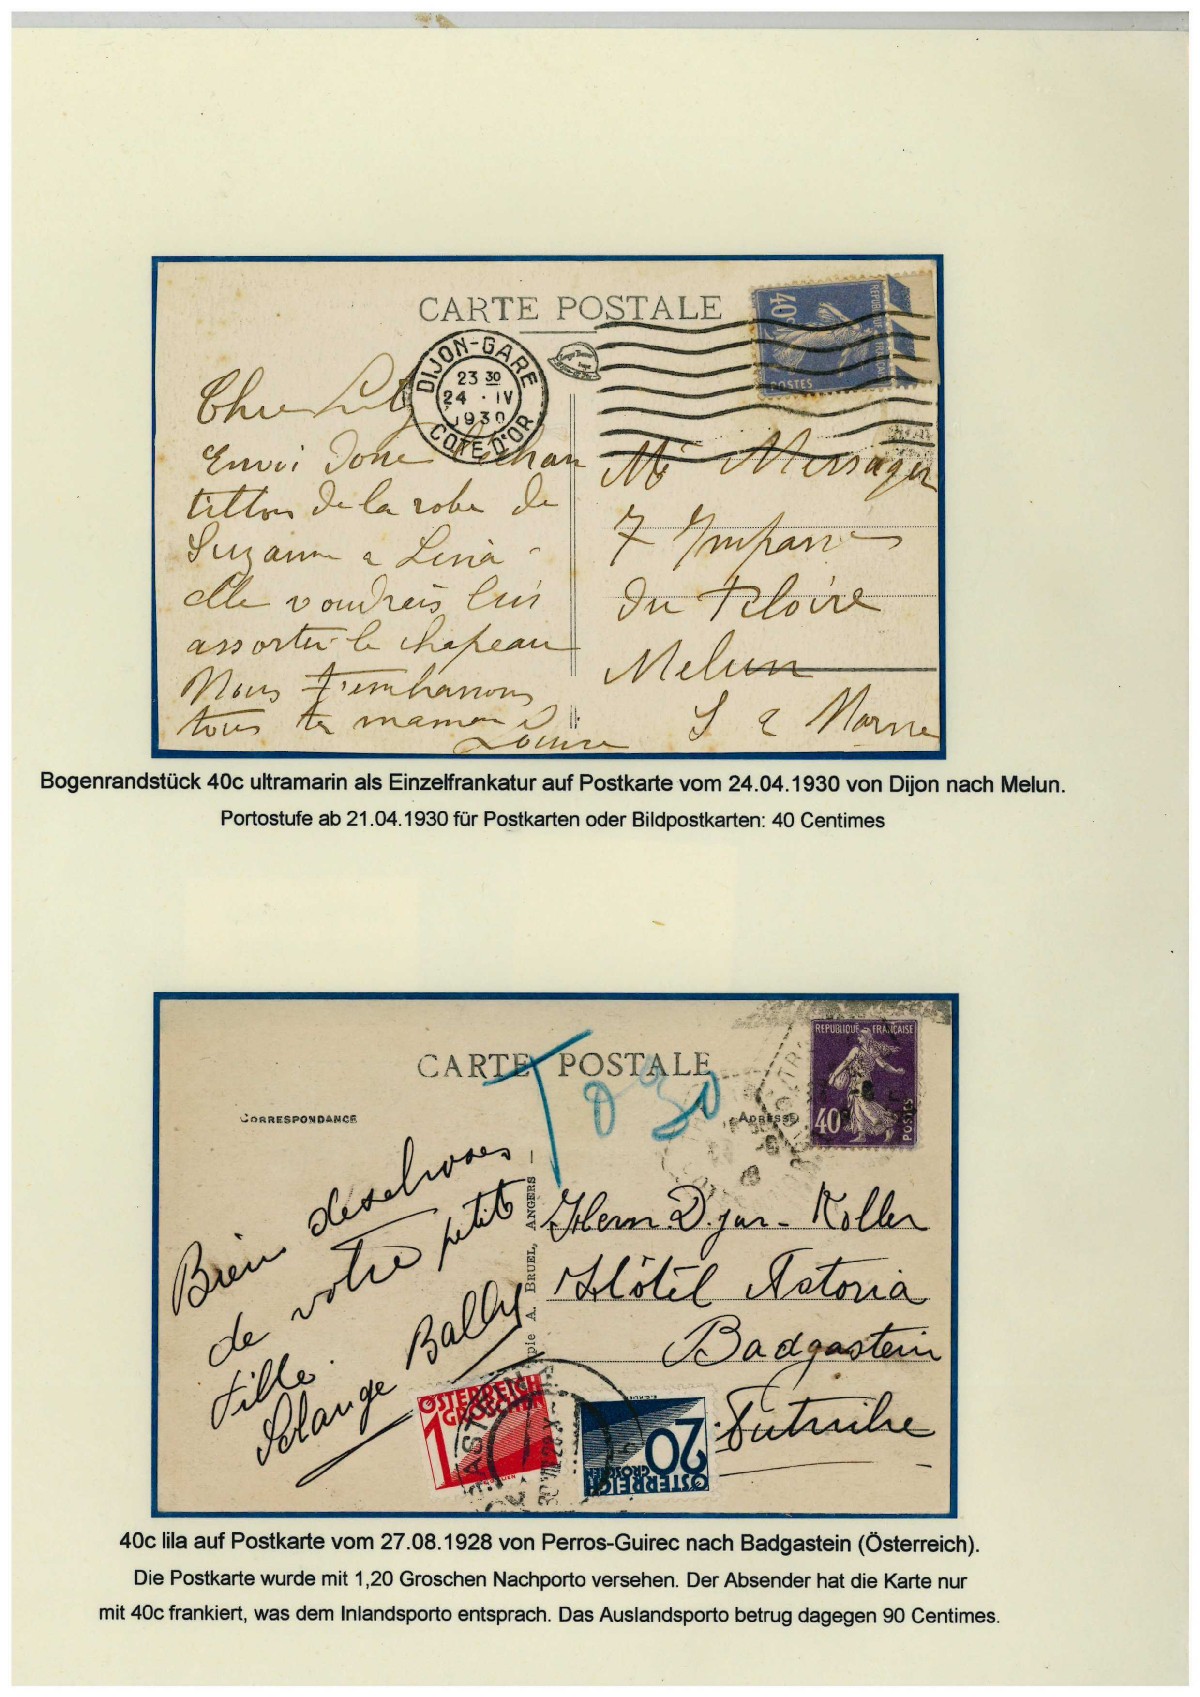 CARTE POSTALE
DIJON-GARE
23 30
24 · IV
1930
COTE D'OR
40c
REPUBLIQUE FRANÇAISE
POSTES
Envoi donc l'echan
tillon de la robe de
Suzanne a
elle voudrais
assortir le chapeau
Nous t'embrassons
tous ta maman
Louise
Mr Messager
7 Impasse
du
Melun
S & Marne
Bogenrandstück 40c ultramarin als Einzelfrankatur auf Postkarte vom 24.04.1930 von Dijon nach Melun.
Portostufe ab 21.04.1930 für Postkarten oder Bildpostkarten: 40 Centimes
CARTE POSTALE
T 0 30
CORRESPONDANCE
ADRESSE
REPUBLIQUE FRANÇAISE
40c
POSTES
Bien des choses
de votre petite
fille.
Solange Bally
A. BRUEL, ANGERS —
Herrn Koller
Hôtel Astoria
Badgastein
Autriche
ÖSTERREICH
GROSCHEN
1
20
GROSCHEN
ÖSTERREICH
40c lila auf Postkarte vom 27.08.1928 von Perros-Guirec nach Badgastein (Österreich).
Die Postkarte wurde mit 1,20 Groschen Nachporto versehen. Der Absender hat die Karte nur
mit 40c frankiert, was dem Inlandsporto entsprach. Das Auslandsporto betrug dagegen 90 Centimes.